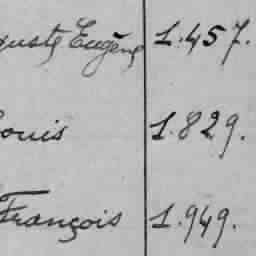 Eugène 1.457.
ouis 1.829.
François 1.949.